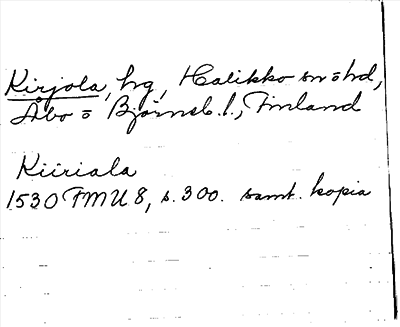 Kirjola, hg, Halikko sn o hd,
Åbo o Björneb. l., Finland
Kiiriala
1530 FMU 8, s. 300. samt. kopia